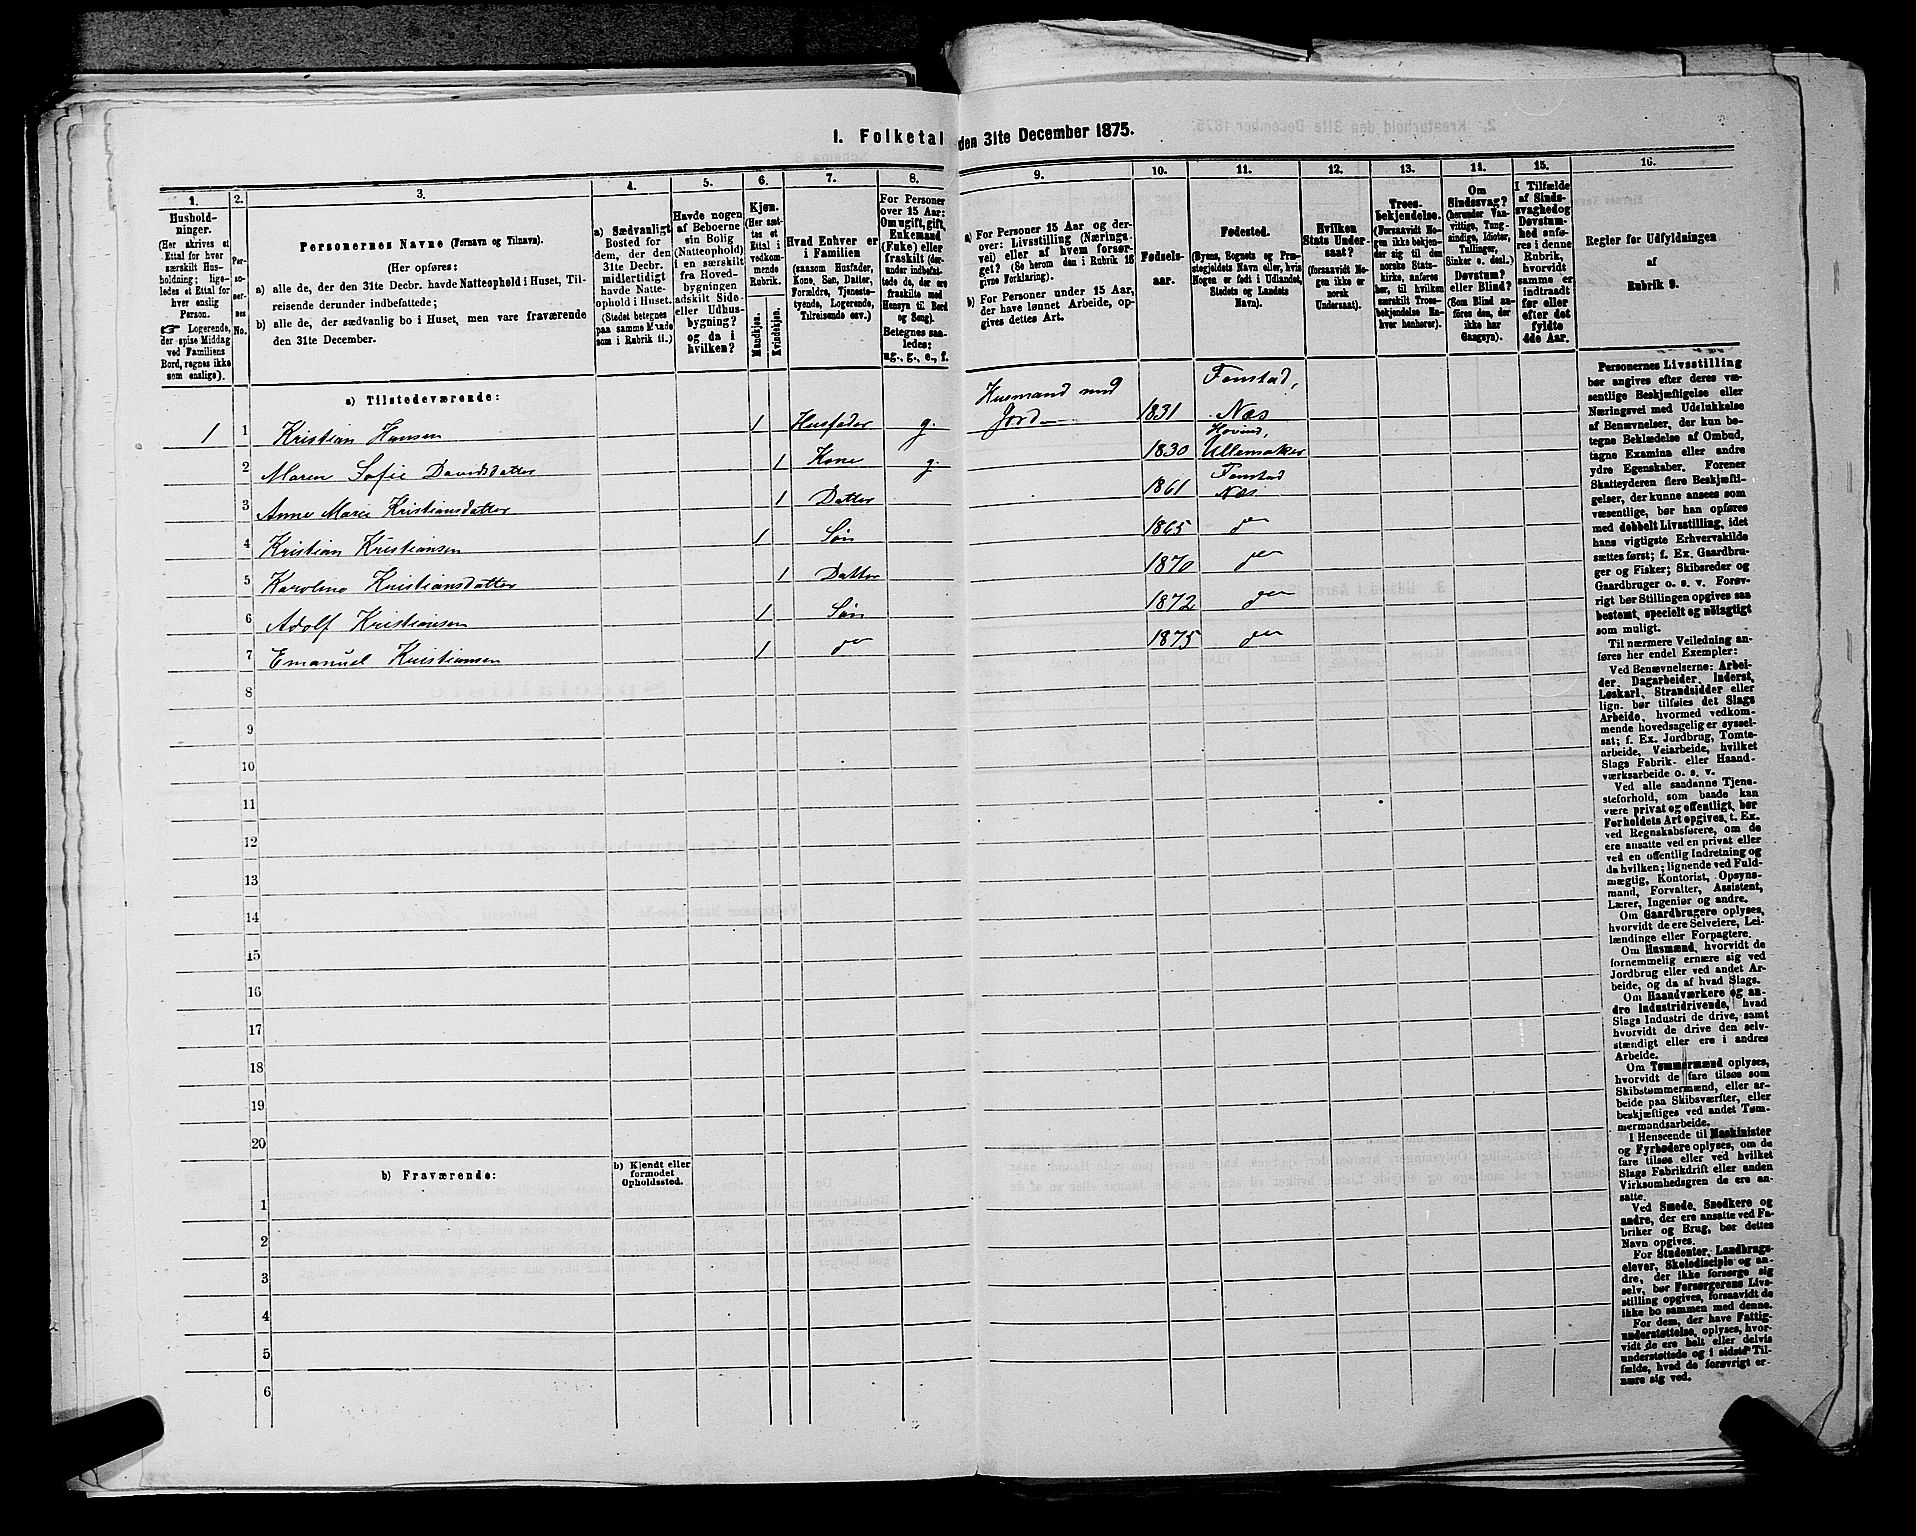 1. Folketal den 31te December 1875.
1.
Hushold-
ninger.
(Her skrives et
Ettal for hver
særskilt Hus-
holdning; lige-
ledes et Ettal for
hver enslig
Person.
☞ Logerende,
der spise Middag
ved Familiens
Bord, regnes ikke
som enslige).
2.
Per-
so-
ner-
nes
No.
3.
Personernes Navne (Fornavn og Tilnavn).
(Her opføres:
a) alle de, der den 31te Decbr. havde Natteophold i Huset, Til-
reisende derunder indbefattede;
b) alle de, der sædvanlig bo i Huset, men vare fraværende
den 31te December.
4.
a) Sædvanligt
Bosted for
dem, der den
31te Decbr.
midlertidigt
havde Natte-
ophold i Huset.
(Stedet betegnes
paa samme Maade
som i Rubrik 11.)
5.
Havde nogen
af Beboerne
sin Bolig
(Natteophold)
i en særskilt
fra Hoved-
bygningen
adskilt Side-
eller Udhus-
bygning?
og da i
hvilken?
6.
Kjøn.
(Her sæt-
tes et
Ettal i
vedkom-
mende
Rubrik.
Mandkjøn.
Kvindekjøn.
7.
Hvad Enhver er
i Familien
(saasom Husfader,
Kone, Søn, Datter,
Forældre, Tjeneste-
tyende, Logerende,
Tilreisende osv.)
8.
For Personer
over 15 Aar:
Om ugift, gift,
Enkemand
(Enke) eller
fraskilt (der-
under indbefat-
tede de, der ere
fraskilte med
Hensyn til Bord
og Seng).
Betegnes saa-
ledes:
ug., g., e., f.
9.
a) For Personer 15 Aar og der-
over: Livsstilling (Nærings-
vei) eller af hvem forsør-
get? (Se herom den i Rubrik 16
givne Forklaring).
b) For Personer under 15 Aar,
der have lønnet Arbeide, op-
gives dettes Art.
10.
Fødsels-
aar.
11.
Fødested.
(Byens, Sognets og Præ-
stegjeldets Navn eller, hvis
Nogen er født i Udlandet,
Stedets og Landets
Navn).
12.
Hvilken
Stats Under-
saat?
(forsaavidt No-
gen ikke er
norsk
Undersaat).
13.
Troes-
bekjendelse.
(Forsaavidt No-
gen ikke bekjen-
der sig til den
norske Stats-
kirke, anføres
her, til hvilken
særskilt Troes-
bekjendelse En-
hver henhører).
14.
Om
Sindssvag?
(herunder Van-
vittige, Tung-
sindige, Idioter,
Tullinger,
Sinker o. desl.)
Døvstum?
eller Blind?
(Som Blind an-
føres den, der
ikke har
Gangsyn).
15.
I Tilfælde
af Sinds-
svaghed og
Døvstum-
hed anfø-
res i denne
Rubrik,
hvorvidt
samme er
indtraadt
før eller
efter det
fyldte
4de Aar.
16.
Regler for Udfyldningen
af
Rubrik 9.
a) Tilstedeværende:
1 1 Kristian Hansen 1 Husfader g. Husmand med Jord 1831 Fenstad, Næs
2 Maren Sofie Davidsdatter 1 Kone g. 1830 Hovind, Ullensaker
3 Anne Marie Kristiansdatter 1 Datter 1861 Fenstad Næs
4 Kristian Kristiansen 1 Søn 1865 do
5 Karoline Kristiansdatter 1 Datter 1870 do
6 Adolf Kristiansen 1 Søn 1872 do
7 Emanuel Kristiansen 1 do 1875 do
8
9
10
11
12
13
14
15
16
17
18
19
20
b) Fraværende:
b) Kjendt eller
formodet
Opholdssted.
1
2
3
4
5
6
Personernes Livsstilling
bør angives efter deres væ-
sentlige Beskjæftigelse eller
Næringsvei med Udelukkelse
af Benævnelser, der kun be-
tegne Beklædelse af Ombud,
tagne Examina eller andre
ydre Egenskaber. Forener
Skatteyderen flere Beskjæfti-
gelser, der kunne ansees som
væsentlige, bør han opføres
med dobbelt Livsstilling, idet
hans vigtigste Erhvervskilde
sættes først; f. Ex. Gaardbru-
ger og Fisker; Skibsreder og
Gaardbruger o. s. v. Forøv-
rigt bør Stillingen opgives saa
bestemt, specielt og nøiagtigt
som muligt.
Til nærmere Veiledning an-
føres her endel Exempler:
Ved Benævnelserne: Arbei-
der, Dagarbeider, Inderst,
Løskarl, Strandsidder eller
lign. bør tilføies det Slags
Arbeide, hvormed vedkom-
mende hovedsagelig er syssel-
sat; f. Ex. Jordbrug, Tomte-
arbeide, Veiarbeide, hvilket
Slags Fabrik- eller Haand-
værksarbeide o. s. v.
Ved alle saadanne Tjene-
steforhold, som baade kan
være privat og offentligt, bør
Forholdets Art opgives, t. Ex.
ved Regnskabsførere, om de
ere ansatte ved en privat eller
ved en offentlig Indretning og
da hvilken; lignende ved Fuld-
mægtig, Kontorist, Opsyns-
mand, Forvalter, Assistent,
Lærer, Ingeniør og andre.
Om Gaardbrugere oplyses,
hvorvidt de ere Selveiere, Lei-
lændinge eller Forpagtere.
Om Husmænd, hvorvidt de
fornemmelig ernære sig ved
Jordbrug eller ved andet Ar-
beide, og da af hvad Slags.
Om Haandværkere og an-
dre Industridrivende, hvad
Slags Industri de drive, samt
hvorvidt de drive den selv-
stændigt eller ere i andres
Arbeide.
Om Tømmermænd oplyses,
hvorvidt de fare tilsøs som
Skibstømmermænd, eller ar-
beide paa Skibsværfter, eller
beskjæftiges ved andet Tøm-
mermandsarbeide.
I Henseende til Maskinister
og Fyrbødere oplyses, om de
fare tilsøs eller ved hvilket
Slags Fabrikdrift eller anden
Virksomhedsgren de ere an-
satte.
Ved Smede, Snedkere og
andre, der ere ansatte ved Fa-
briker og Brug, bør dettes
Navn opgives.
For Studenter, Landbrugs-
elever, Skoledisciple og an-
dre, der ikke forsørge sig
selv, bør Forsørgerens Livs-
stilling opgives, forsaavidt de
ikke bo sammen med denne.
For dem, der have Fattig-
understøttelse, oplyses, hvor-
vidt de ere helt eller delvis
understøttede og i sidste Til-
fælde, hvad de forøvrigt er-
nære sig ved.